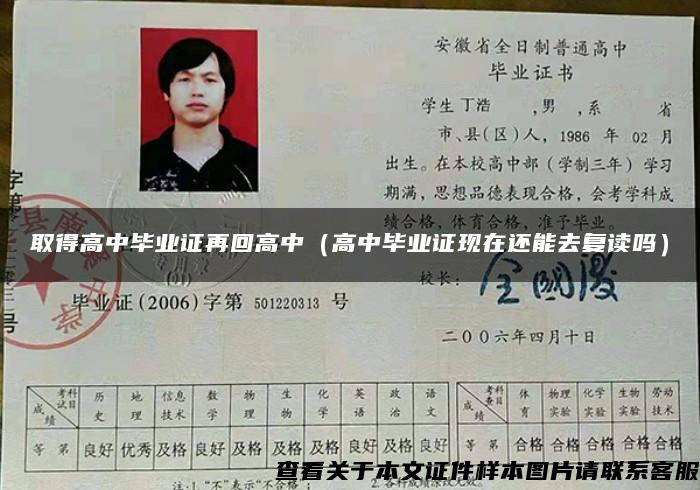 安徽省全日制普通高中
毕业证书
学生 丁浩 ,男 ,系 省
市、县(区)人，1986 年 02 月
出生。在本校高中部（学制三年）学习
期满，思想品德表现合格，会考学科成
绩合格，体育合格，准予毕业。
取得高中毕业证再回高中（高中毕业证现在还能去复读吗）
校长：
毕业证(2006)字第 501220313 号
二〇〇六年四月十日
考试科目 历史 地理 信息技术 数学 物理 生物 化学 英语 政治 语文 考查科目 体育 物理实验 化学实验 生物实验 劳动技术
成绩 成绩
等第 良好 优秀 及格 良好 及格 及格 及格 良好 及格 良好 等第 合格 合格 合格 合格 合格
查看关于本文证件样本图片请联系客服
注:1."不"表示"不合格"；